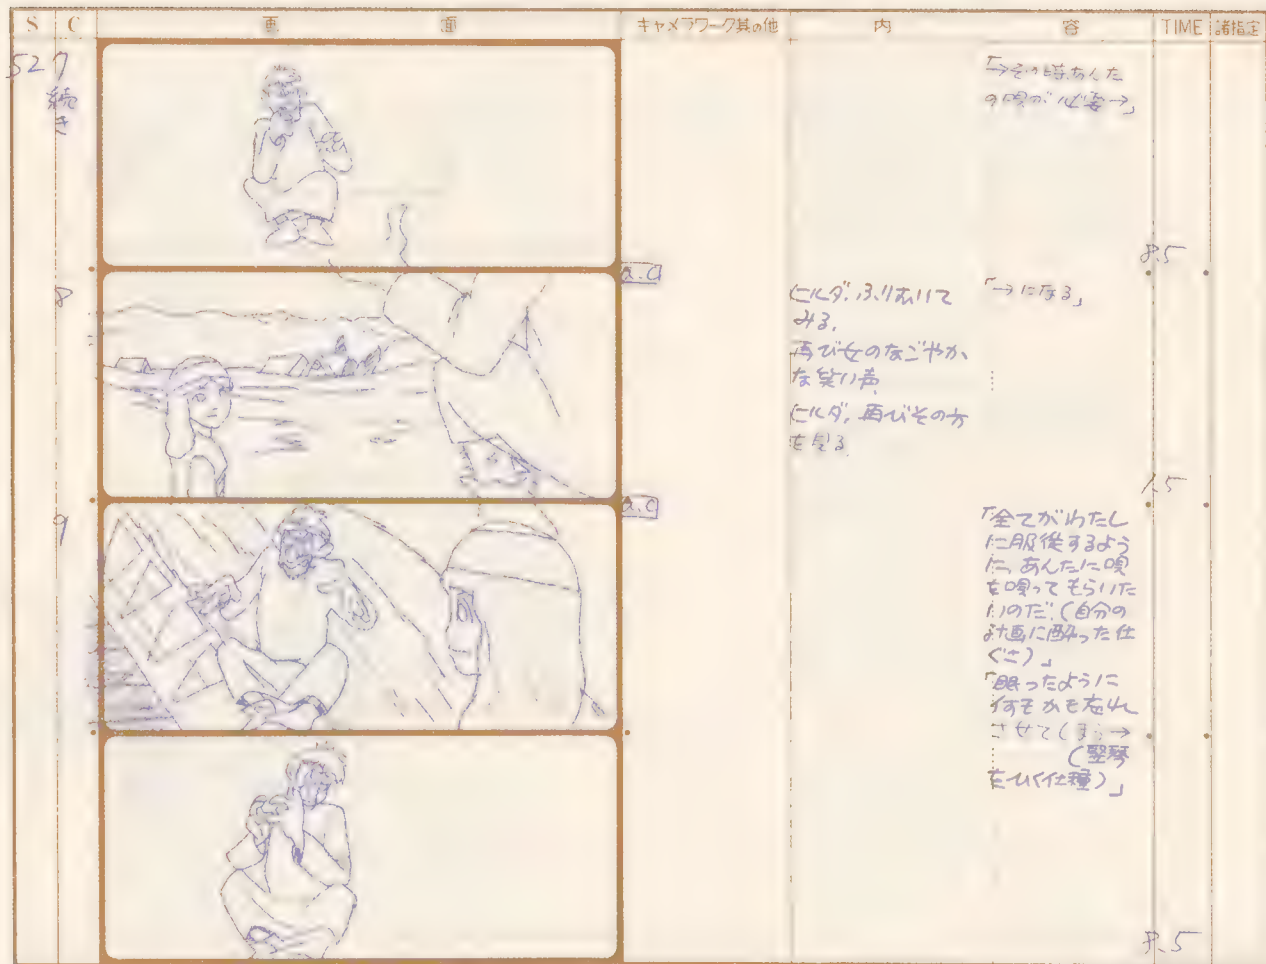 S C 画面 キャメラワーク其の他 内容 TIME 諸指定
527
続き
「→その時あんた
の唄が必要→」
8.5
8
a.c
ヒルダ、ふりむいて
みる。
再び女のなごやか
な笑い声、
ヒルダ、再びその方
を見る。
「→になる」
1.5
9
a.c
「全てがわたし
に服従するよう
に、あんたに唄
を唄ってもらいた
いのだ。(自分の
計画に酔った仕
ぐさ)」
「眠ったように
何もかも忘れ
させてしまう→
(竪琴
をひく仕種)」
8.5